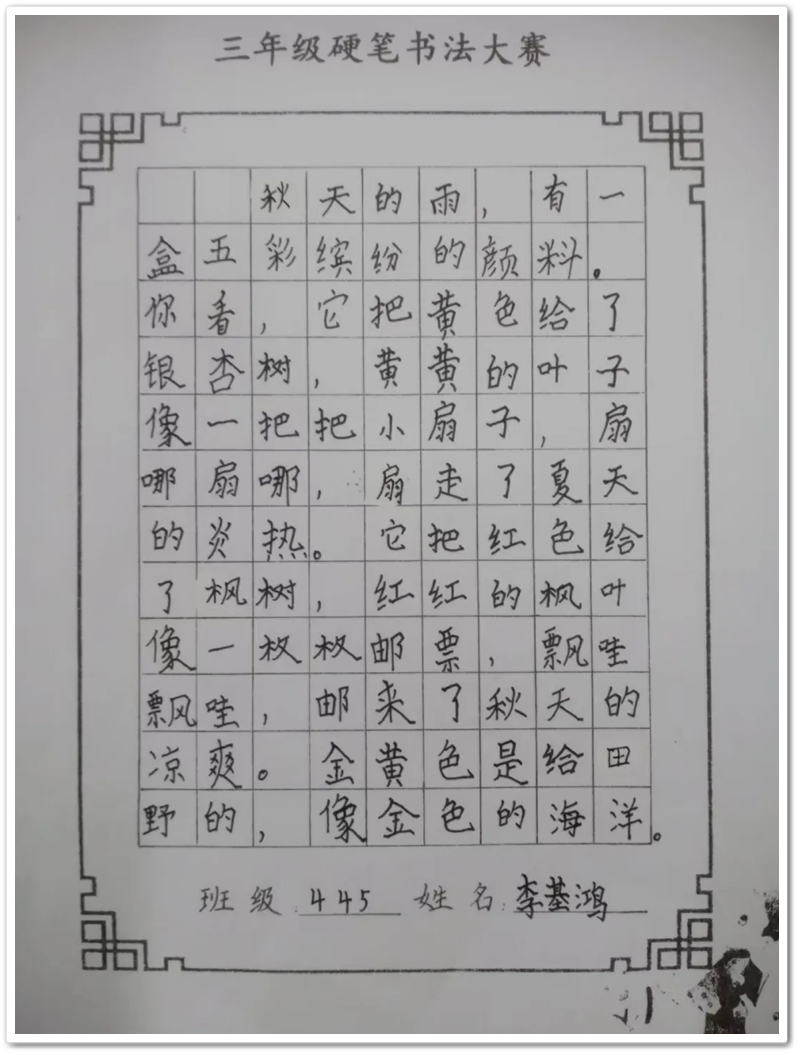 三年级硬笔书法大赛
秋天的雨，有一
盒五彩缤纷的颜料。
你看，它把黄色给了
银杏树，黄黄的叶子
像一把把小扇子，扇
哪扇哪，扇走了夏天
的炎热。它把红色给
了枫树，红红的枫叶
像一枚枚邮票，飘哇
飘哇，邮来了秋天的
凉爽。金黄色是给田
野的，像金色的海洋。
班级：445 姓名：李基鸿